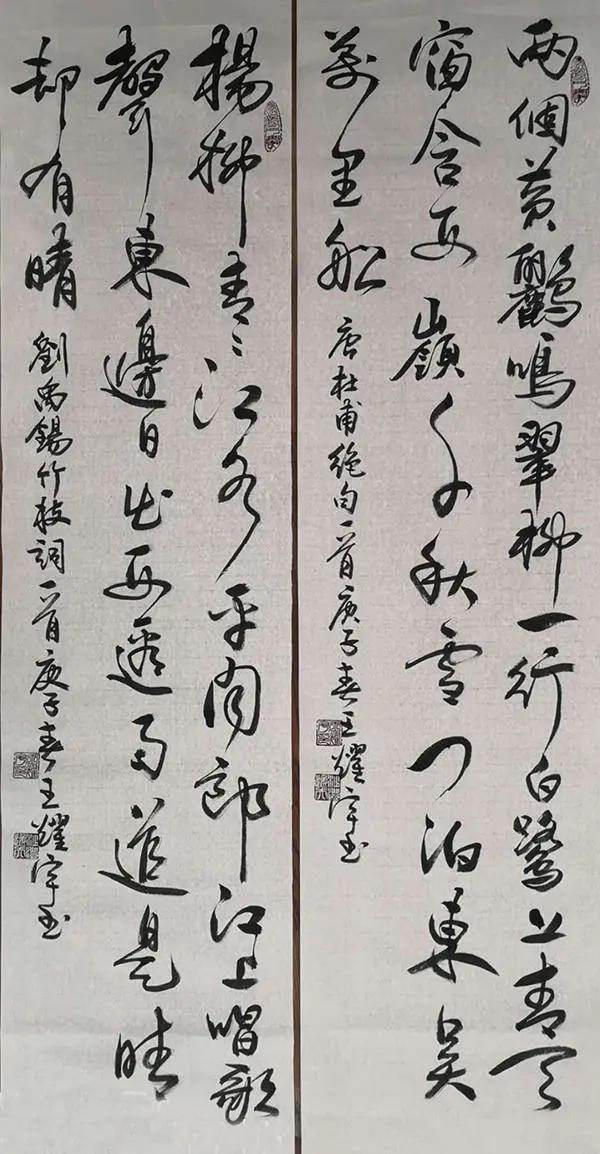 兩個黃鸝鳴翠柳一行白鷺上青天
窗含西嶺千秋雪门泊東吳
萬里船
唐杜甫絕句一首庚子春王耀宇书
楊柳青々江水平闻郎江上唱歌
聲東邊日出西邊雨道是晴
却有晴
劉禹錫竹枝詞一首庚子春王耀宇书